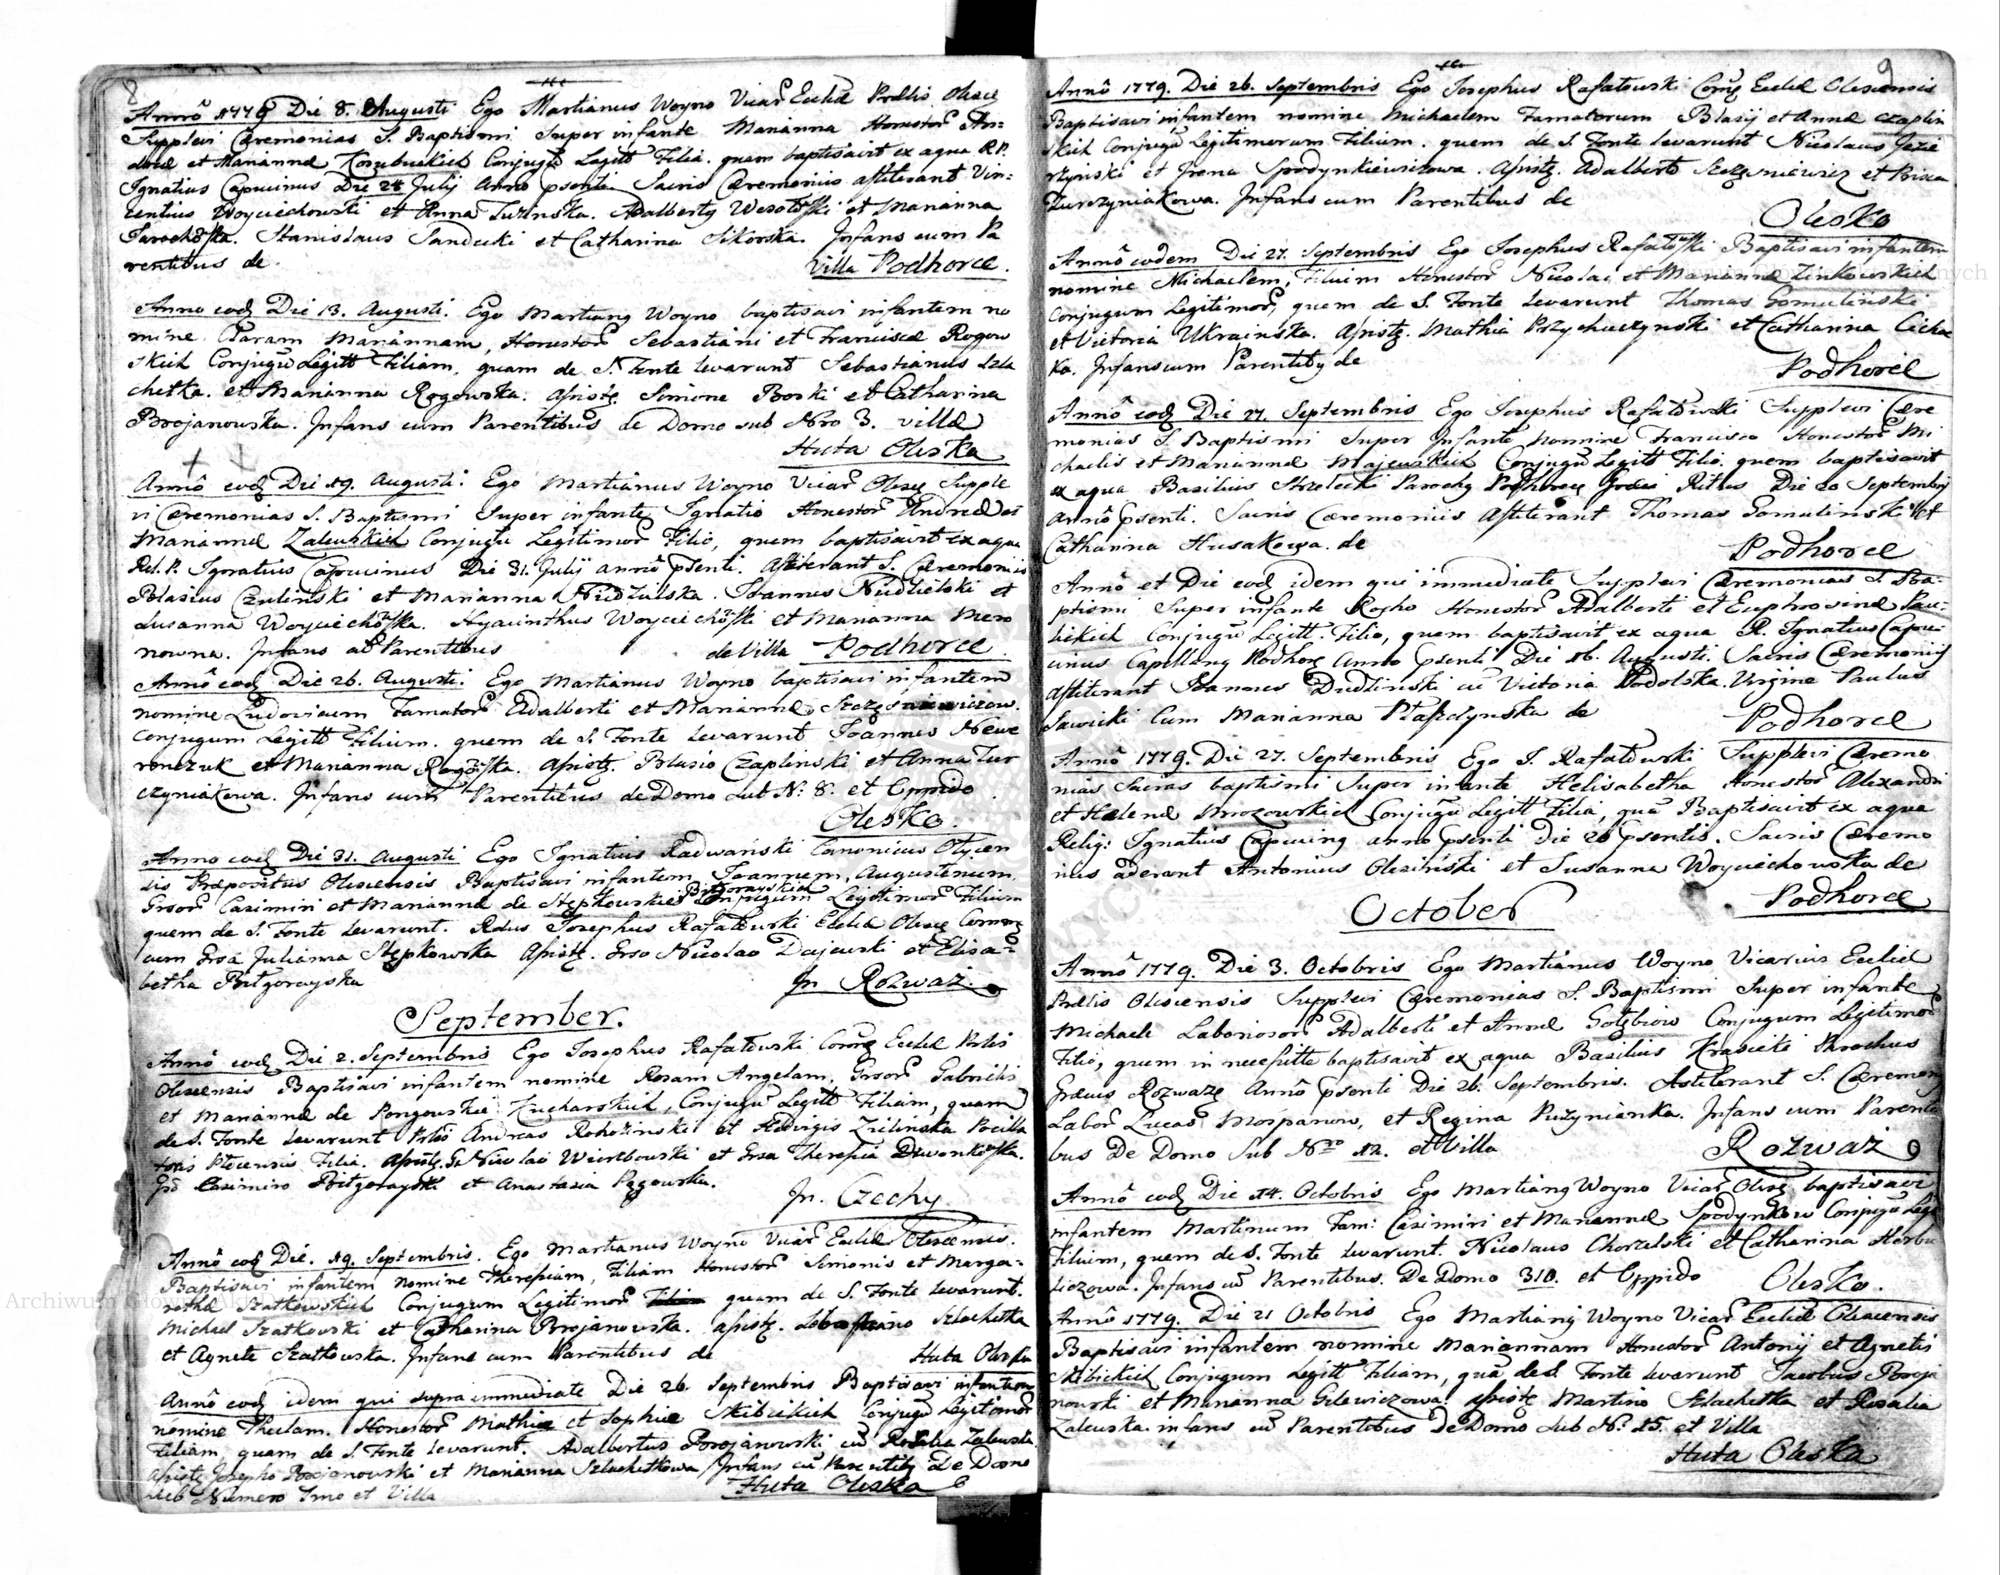 8
Annô 1779 Die 8. Augusti Ego Martianus Woyno Vicar Eccliæ Prlis Olesc
Supplevi Cæremonias S. Baptismi Super infante Marianna Honestor An-
dreæ et Mariannæ Conjugũ Legitt Filia. quam baptisavit ex aqua R.P.
Ignatius Capucinus Die 28 Julij Anno pſenti Sacris Cæremoniis aſtiterant Vin-
centius Woyciechowski et Anna. Adalberty et Marianna
Stanislaus Sandecki et Catharina Sikorska. Infans cum Pa
rentibus de Villa Podhorce.
Anno eod Die 13. Augusti. Ego Martiany Woyno baptisavi infantem no
mine Claram Mariannam, Honestor Sebastiani et Franciscæ Rogow
skich Conjugũ Legitt Filiam, quam de S. Fonte levarunt Sebastianus Szla
chetka. et Marianna Rogowska. Aſsistę Simone Borski et Catharina
Brojanowska. Infans cum Parentibus de Domo sub Nro 3. villæ
Huta Oleska
Annô eod Die 19. Augusti. Ego Martianus Woyno Vicar Olesc Supple
vi Cæremonias S. Baptismi Super infante Ignatio Honestor Andreæ et
Mariannæ Zalewskich Conjugũ Legitimor Filio, quem baptisavit ex aqua
Rel. P. Ignatius Capucinus Die 31. Julij annô pſenti. Aſtiterant S. Cæremoniis
Blasius Czulinski et Marianna Nudzielska. Joannes Nudzielski et
Susanna. Hyacinthus et Marianna Mero
nowna. Infans ab Parentibus de Villa Podhorce.
Annô eod Die 26. Augusti. Ego Martianus Woyno baptisavi infantem
nomine Ludovicum Famator Adalberti et Mariannæ
Conjugum Legitt Filium. quem de S. Fonte levarunt Joannes
et Marianna. Aſsistę. Blasio Czaplinski et Anna Tur
czyniakowa. Infans cum Parentibus de Domo Sub N. 8. et Oppido
Olesko.
Anno eod Die 31. Augusti Ego Ignatius Radwański Canonicus
Præpositus Olescensis Baptisavi infantem Joannem, Augustinum
Bilgorayskich
Grsor Casimiri et Mariannæ de Stępkowskie Conjugum Legitimor Filium
quem de S. Fonte levarunt. Rdus Josephus Rafałowski Eccliæ Olesc
cum Grsa Julianna Stępkowska Aſsistę. Grso Nicolao Dajewski et Elisa-
betha Bilgorayska In Rozwaz.
September.
Annô eod Die 2. Septembris Ego Josephus Rafałowski Eccliæ Prlis
Olescensis Baptisavi infantem nomine Rosam Angelam, Grsor Gabrielis
et Mariannæ de Kucharskich, Conjugũ Legitt Filiam, quam
de S. Fonte levarunt Andreas et Hedvigis Zielinska
Filia. Aſsistę. Nicolai Wierzbowski et Grsa Theresia
Casimiro Bilgorayski et Anastazia
In. Czechy.
Annô eod Die. 19. Septembris. Ego Martianus Woyno Vicar Eccliæ Olescensis.
Baptisavi infantem nomine Theresiam, Filiam Honestor Simonis et Marga-
rethæ Szatkowskich Conjugum Legitimor quam de S. Fonte levarunt.
Michael Szatkowski et Catharina Brojanowska. Aſsistę. Sebastiano Szlachetka
et Agnete Szatkowska. Infans cum Parentibus de Huta Oleska
Annô eod idem qui supra immediate Die 26. Septembris Baptisavi infantem
nomine Theclam. Honestor Mathiæ et Sophiæ Skibickich Conjugũ Legitimor
Filiam quam de S. Fonte levarunt. Adalbertus Brojanowski cũ Rosalia Zalewska.
Aſsistę Josepho Brojanowski et Marianna Szlachetkowa Infans cũ Parentiby de Domo
Sub Numero 1mo et Villa Huta Oleska
9
Annô 1779. Die 26. Septembris Ego Josephus Rafałowski Eccliæ Olescensis
Baptisavi infantem nomine Michaelem Famatorum Blasij et Annæ Czaplin
skich Conjugũ Legitimorum Filium. quem de S. Fonte levarunt Nicolaus Jezie
rzynski et Irena Spodynkiewiczowa. Aſsistę. Adalberto et
Turczyniakowa. Infans cum Parentibus de
Olesko
Annô eodem Die 27. Septembris Ego Josephus Rafałowski Baptisavi infantem
nomine Michaelem, Filium Honestor Nicolai et Mariannæ Zinkowskich
Conjugum Legitimor, quem de S. Fonte Levarunt Thomas Gomulinski
et Victoria Ukrainska. Aſsistę. Mathia Przychuczynski et Catharina Cicha
ka. Infans cum Parentiby de
Podhorcé
Annô eod Die 27. Septembris Ego Josephus Rafałowski Supplevi Cære
monias S. Baptismi Super Infante nomine Francisco Honestor Mi
chaelis et Mariannæ Majewskich Conjugũ Legitt Filio quem baptisavit
ex aqua Basilius Strzelecki Parochy Podhorec Græci Ritus Die 20 Septembry
Annô pſenti. Sacris Cæremoniis Aſtiterant Thomas Gomulinski et
Catharina Husakowa. de
Podhorcé
Annô et Die eod idem qui immediate Supplevi Cæremonias S. Ba-
ptismi Super infante Rocho Honestor Adalberti et Euphrosinæ
Conjugũ Legitt. Filio, quem baptisavit ex aqua R. Ignatius Capu-
cinus Capellany Podhorc Anno pſenti Die 16. Augusti. Sacris Cæremoniis
aſtiterant Joannes Dudzinski cũ Victoria Podolska Virgine Paulus
Sawicki Cum Marianna de
Podhorcé
Annô 1779. Die 27. Septembris Ego J. Rafałowski Supplevi Cæremo
nias Sacras baptismi Super infante Helisabetha Honestor Alexandri
et Helenæ Mrozowskich Conjugũ Legitt Filia, quã Baptisavit ex aqua
Relig: Ignatius Capuciny anno pſenti Die 20 pſentis. Sacris Cæremo
niis aderant Antonius Olesinski et Susanna Woyciechowska de
Podhorcé
October
Annô 1779. Die 3. Octobris Ego Martianus Woyno Vicarius Eccliæ
Prælis Olescensis Supplevi Cæremonias S. Baptismi Super infante
Michaele Laboriosor Adalberti et Annæ Conjugum Legitimor
Filio, quem in neceſsitte baptisavit ex aqua Basilius Krasicki Parochus
Græcus Rozwazę Annô pſenti Die 26. Septembris. Astiterant S. Cæremony
Labor Lucas et Regina. Infans cum Parenti
bus De Domo Sub Nro 12. et Villa Rozwaz
Annô eod Die 14. Octobris Ego Martiany Woyno Vicar Olesc baptisavi
infantem Martinum Fam: Casimiri et Mariannæ Spodynkow Conjugũ Legi
Filium, quem de S. Fonte levarunt. Nicolaus Chorzelski et Catharina Horbu
liczowa. Infans cũ Parentibus. De Domo 310. et Oppido Olesko.
Annô 1779. Die 21 Octobris Ego Martiany Woyno Vicar Eccliæ Olescensis
Baptisavi infantem nomine Mariannam Honestor Antonij et Agnetis
Skibickich Conjugum Legitt Filiam, quã de S. Fonte levarunt Jacobus Broja
nowski et Marianna Gilewiczowa. Aſsistę Martino Szlachetka et Rosalia
Zalewska. infans cũ Parentibus De Domo Sub N. 15. et Villa
Huta Oleska